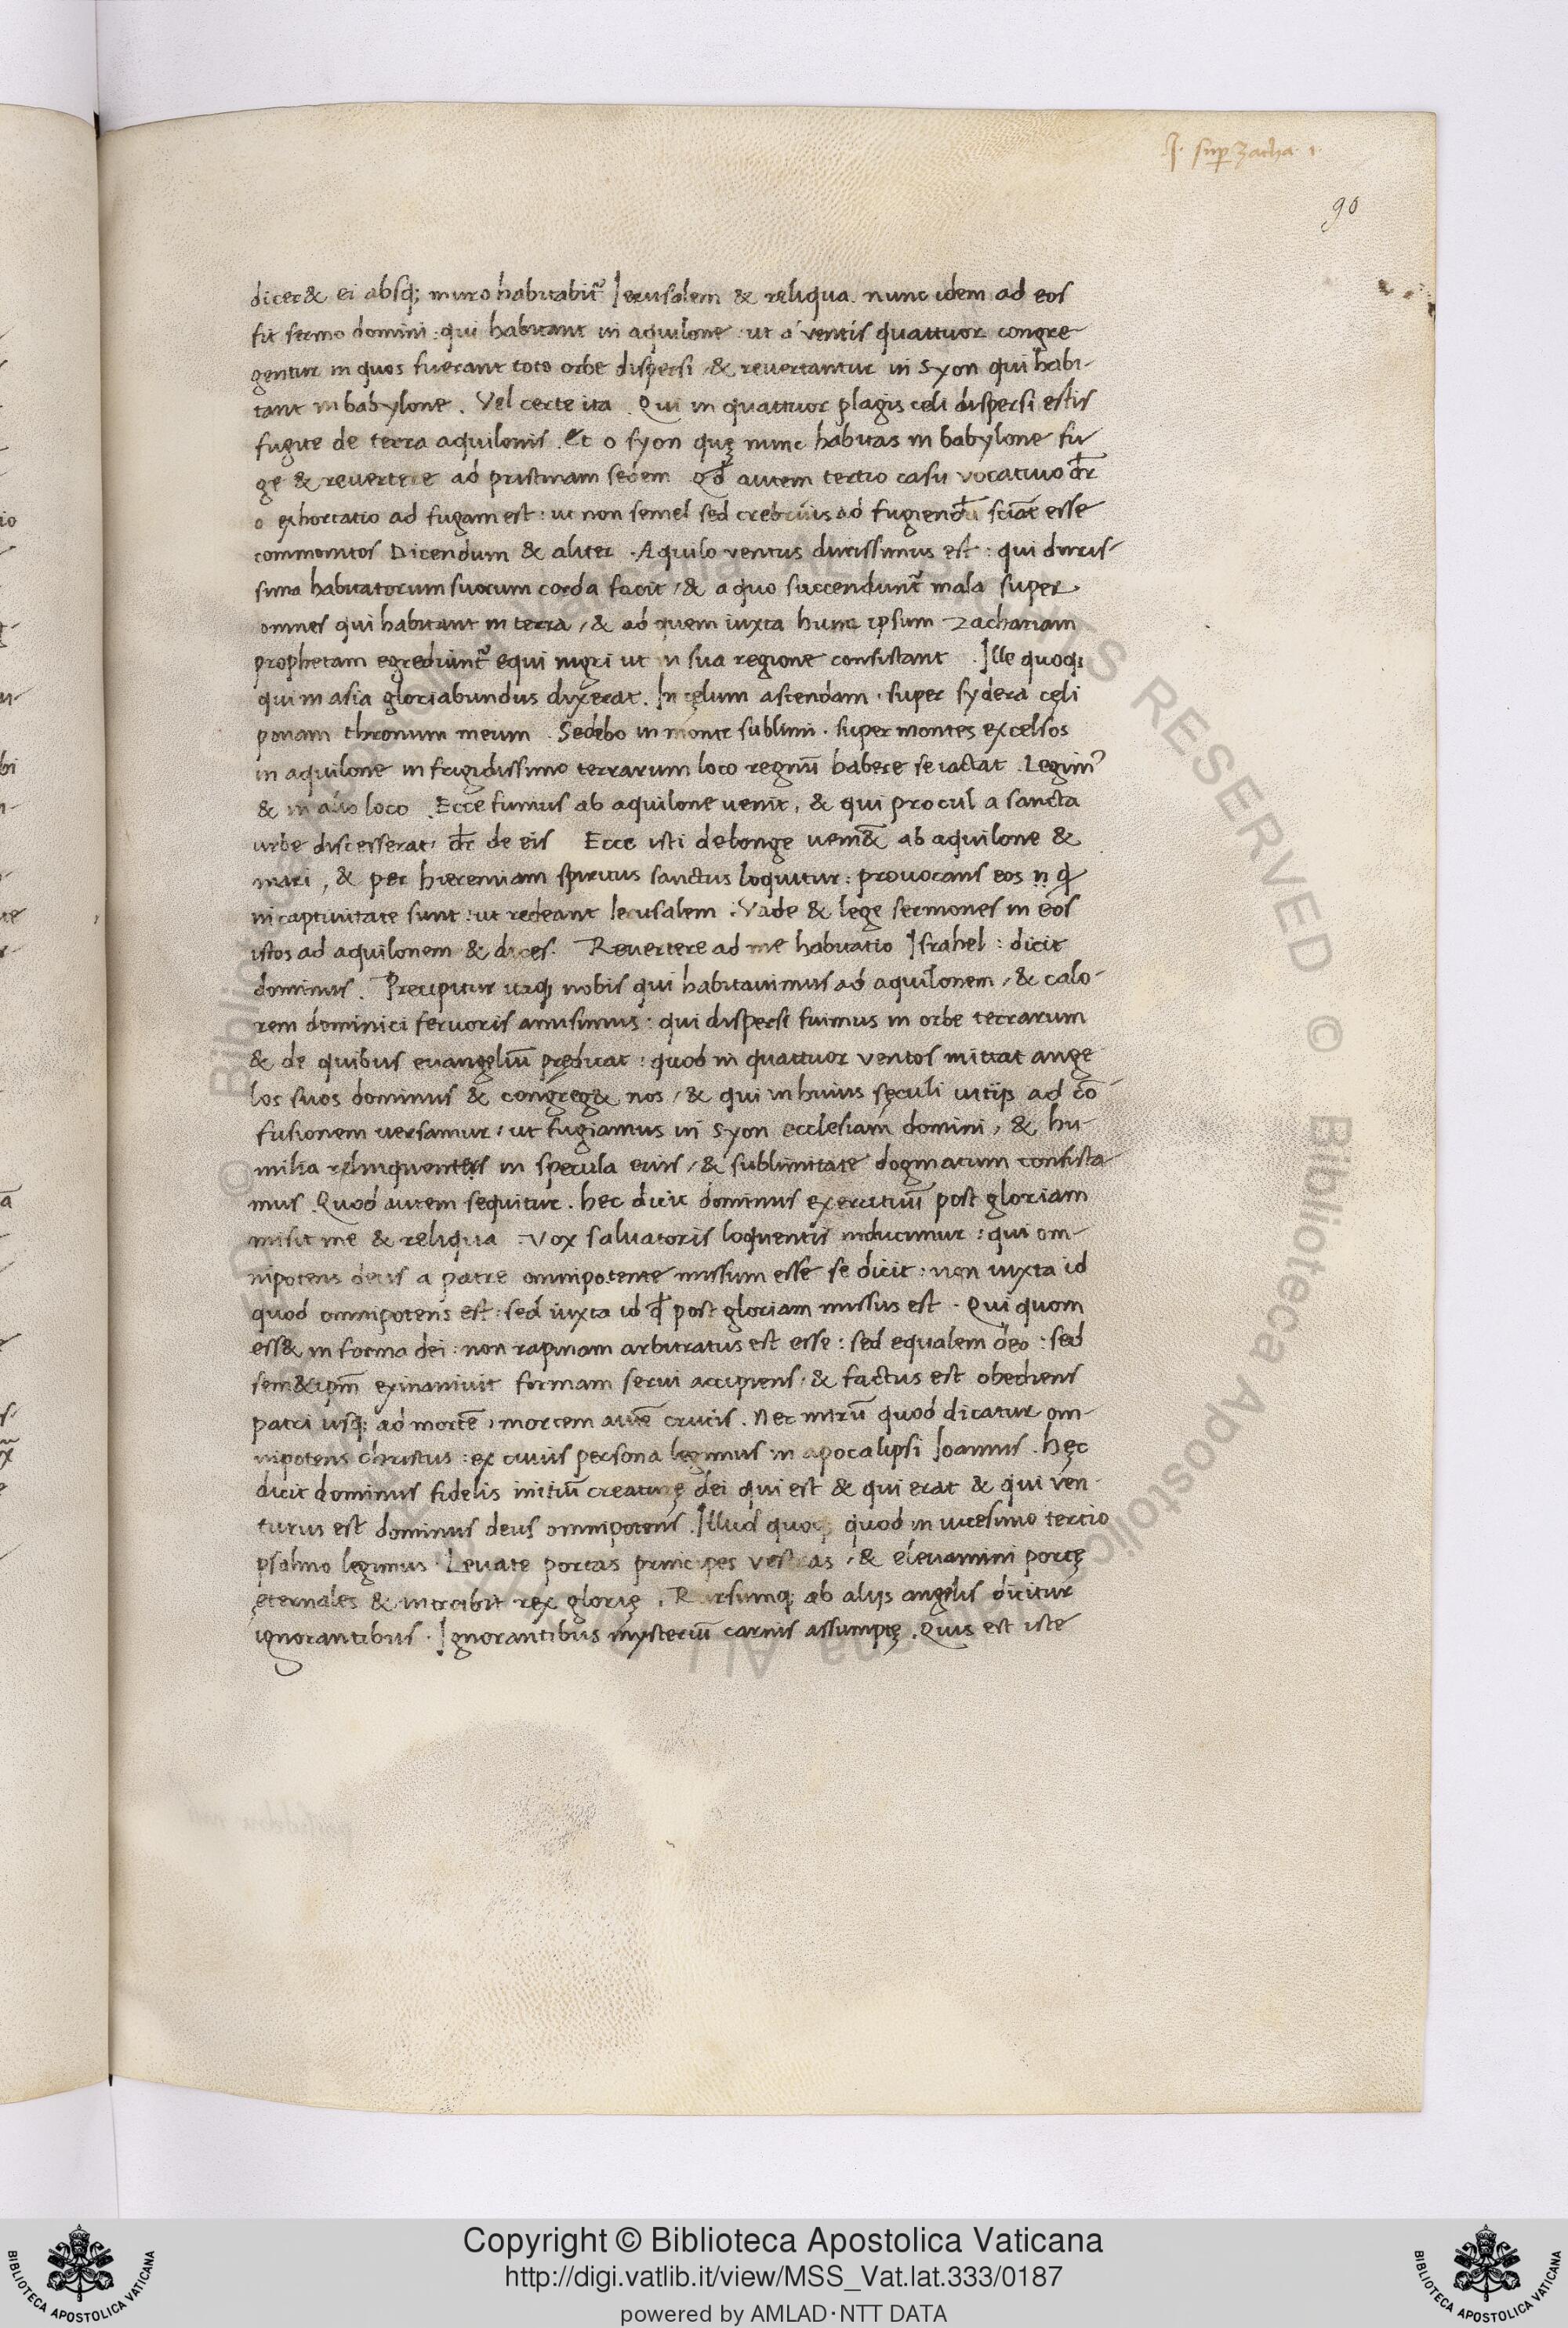 .J. sup zacha .1.
90
dicer& ei absq; muro habitabit᷑ Ierusalem & reliqua. nunc idem ad eos
fit sermo domini: qui habitant in aquilone: ut a ventis quattuor congre-
gentur in quos fuerant toto orbe dispersi, & revertantur in syon qui habi-
tant in babylone. Vel certe ita. Qui in quattuor plagis celi dispersi estis
fugite de terra aquilonis. Et o syon quę nunc habitas in babylone fu-
ge & revertere ad pristinam sedem qđ autem tertio casu vocativo dr̄
o exhortatio ad fugam est: ut non semel sed crebrius ad fugiendū sciāt esse
commonitos Dicendum & aliter. Aquilo ventus durissimus est: qui duris-
sima habitatorum suorum corda facit, & a quo succendunt᷑ mala super
omnes qui habitant in terra, & ad quem iuxta hunc ipsum zachariam
prophetam egrediunt᷑ equi nigri ut in sua regione consistant. Ille quoq;
qui in asia gloriabundus dixerat. In cęlum ascendam. super sydera cęli
ponam thronum meum. Sedebo in monte sublimi. super montes excelsos
in aquilone in frigidissimo terrarum loco regnū habere se iactat. Legim᷒
& in alio loco. Ecce fumus ab aquilone uenit, & qui procul a sancta
urbe discesserat, dr̄ de eis Ecce isti de longe ueni&̄ ab aquilone &
mari, & per hieremiam spiritus sanctus loquitur: provocans eos ṇ q̇
in captivitate sunt: ut redeant Ierusalem: Vade & lege sermones in eos
istos ad aquilonem & dices. Revertere ad me habitatio Israhel: dicit
dominus. Precipitur itaq; nobis qui habitavimus ad aquilonem, & calo-
rem dominici fervoris amisimus: qui dispersi fuimus in orbe terrarum
& de quibus evangeliū predicat: quod in quattuor ventos mittat ange-
los suos dominus & congreg& nos, & qui in huius sęculi vitijs ad cō-
fusionem versamur, ut fugiamus in syon ecclesiam domini, & hu-
milia relinquentes in specula eius, & sublimitate dogmatum consista-
mus. Quod autem sequitur. hec dicit dominus exercituū post gloriam
misit me & reliqua: Vox salvatoris loquentis inducimur: qui om-
nipotens deus a patre omnipotente missum esse se dicit: non iuxta id
quod omnipotens est: sed iuxta id qđ post gloriam missus est. Qui quom
ess& in forma dei: non rapinam arbitratus est esse: sed equalem deo: sed
sem&ipm̄ exinanivit formam servi accipiens, & factus est obediens
patri usq; ad mortē, mortem autē crucis. Nec mirū quod dicatur om-
nipotens christus: ex cuius persona legimus in apocalipsi Ioannis. hęc
dicit dominus fidelis initiū creaturę dei qui est & qui erat & qui ven-
turus est dominus deus omnipotens. Illud quoq; quod in vicesimo tertio
psalmo legimus. Levate portas principes vestras, & elevamini portę
ęternales & introibit rex glorię. Rursumq; ab alijs angelis dicitur
ignorantibus. Ignorantibus mysteriū carnis assumptę. Quis est iste
Copyright © Biblioteca Apostolica Vaticana
http://digi.vatlib.it/view/MSS_Vat.lat.333/0187
powered by AMLAD·NTT DATA